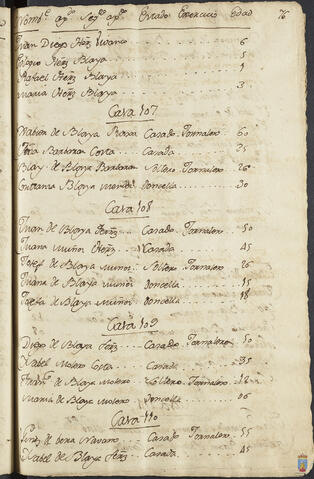 Nomb.e ap.do Seg.do ap.do Estado Exercicio Edad 76
Juan Diego Hern.z 6
Hern.z Blaya 5
Rafael Hern.z Blaya
Maria Hern.z Blaya 3
Casa 107
de Blaya Roxa Casado Jornalero 60
Barbera Costa Casada 35
Blas de Blaya Barbera Soltero Jornalero 26
Blaya doncella 30
Casa 108
Juan de Blaya Hern.z Casado Jornalero 50
Juana Muños Hern.z Casada 45
Josef de Blaya Muños Soltero Jornalero 26
Juana de Blaya Muños doncella 15
Josefa de Blaya Muños doncella 18
Casa 109
Diego de Blaya Hern.z Casado Jornalero 50
Ysabel Molero Costa Casada 35
Fran.co de Blaya Molero Soltero Jornalero
Maria de Blaya Molero doncella 06
Casa 110
Gines de Navarro Casado Jornalero 55
Ysabel de Blaya Hern.z Casada 45